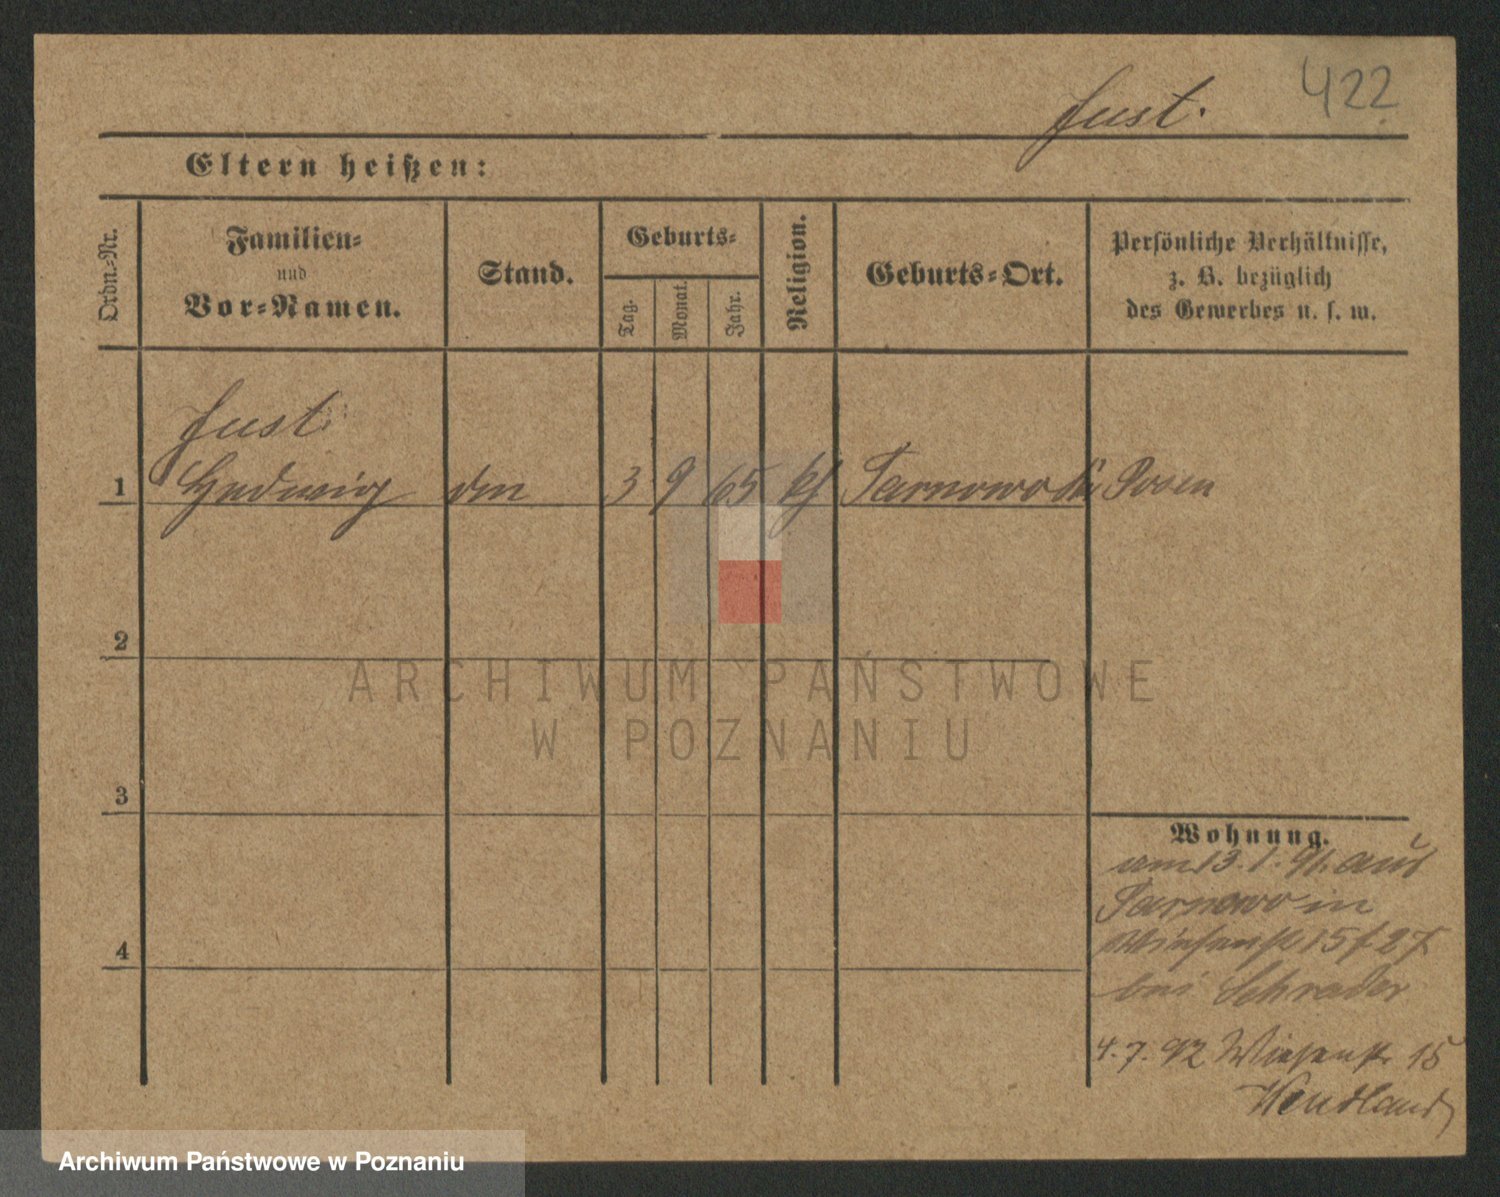 422
Just.
Eltern heißen:
Ordn.-Nr.
Familien-
und
Vor-Namen.
Stand.
Geburts-
Tag.
Monat.
Jahr.
Religion.
Geburts-Ort.
Persönliche Verhältnisse,
z. B. bezüglich
des Gewerbes u. s. w.
Just.
1 Hedwig 3 9 65 Tarnowo Posen
2
3
4
Wohnung.
am 13. 1. 91. aus
Tarnowo in
Wiesenstr 15
bei Schrader
4. 7. 92 Wiesenstr. 15
Wendland
ARCHIWUM PAŃSTWOWE
W POZNANIU
Archiwum Państwowe w Poznaniu